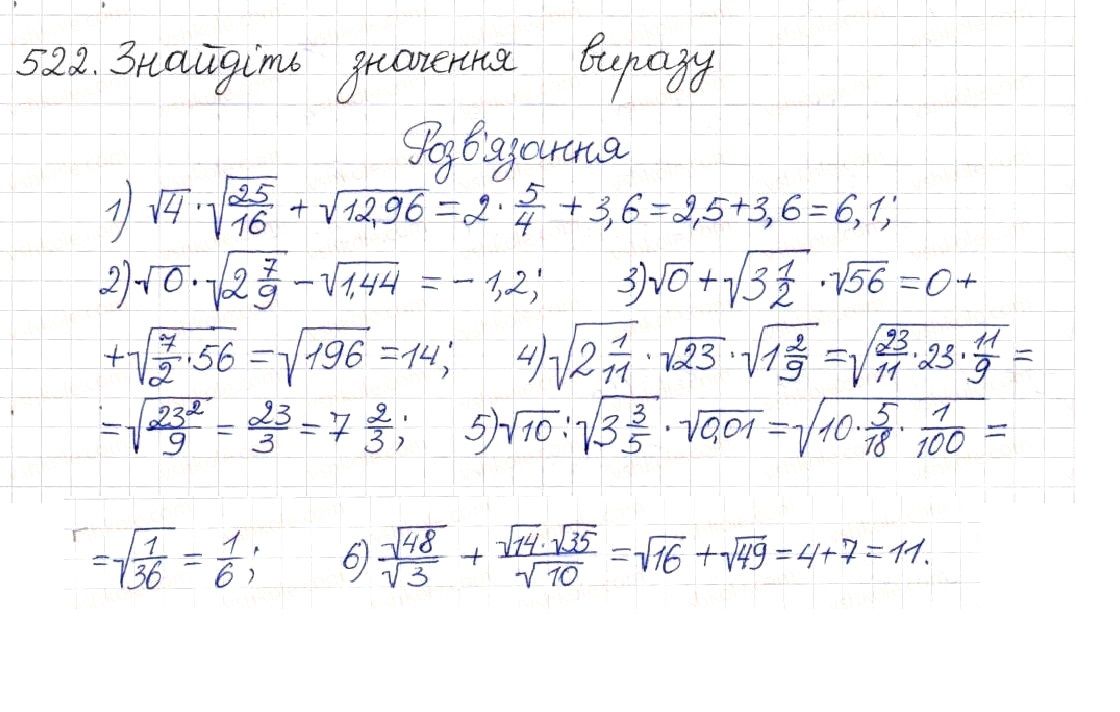 522. Знайдіть значення виразу
Розв'язання
1) √4 · √(25/16) + √12,96 = 2 · 5/4 + 3,6 = 2,5 + 3,6 = 6,1;
2) √0 · √(2 7/9) − √1,44 = − 1,2; 3) √0 + √(3 1/2) · √56 = 0 +
+ √(7/2 · 56) = √196 = 14; 4) √(2 1/11) · √23 · √(1 2/9) = √(23/11 · 23 · 11/9) =
= √(23²/9) = 23/3 = 7 2/3; 5) √10 : √(3 3/5) · √0,01 = √(10 · 5/18 · 1/100) =
= √(1/36) = 1/6; 6) √48/√3 + √14·√35/√10 = √16 + √49 = 4 + 7 = 11.